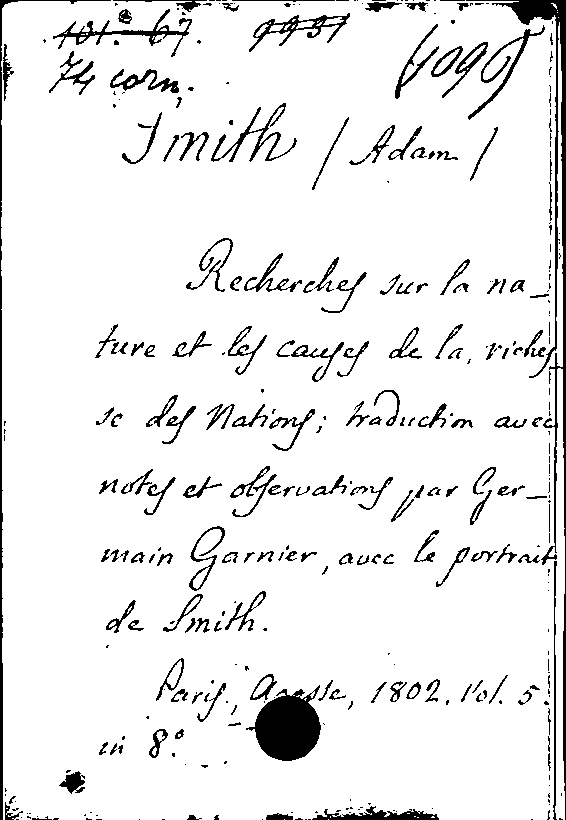 101. 67. 9931
74 corn. (1090)
Smith (Adam)
Recherches sur la na_
ture et les causes de la riches
se des Nations; traduction avec
notes et observations par Ger_
main Garnier, avec le portrait
de Smith.
Paris, Agasse, 1802. Vol. 5.
in 8.°